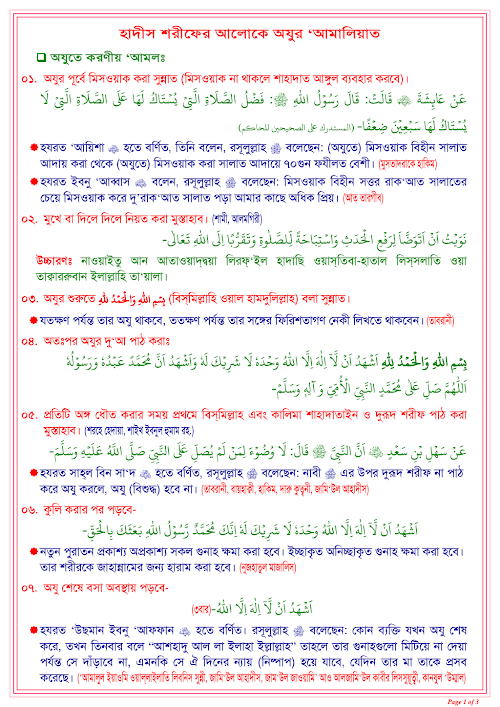 হাদীস শরীফের আলোকে অযুর ‘আমালিয়াত
❑ অযুতে করণীয় ‘আমলঃ
০১. অযুর পূর্বে মিসওয়াক করা সুন্নাত (মিসওয়াক না থাকলে শাহাদাত আঙ্গুল ব্যবহার করবে)।
عَنْ عَايِشَةَ قَالَتْ: قَالَ رَسُوْلُ اللهِ ﷺ: فَضْلُ الصَّلَاةِ الَّتِيْ يُسْتَاكُ لَهَا عَلَى الصَّلَاةِ الَّتِيْ لَا
يُسْتَاكُ لَهَا سَبْعِيْنَ ضِعْفًا- (المستدرك على الصحيحين للحاكم)
হযরত ‘আয়িশা হতে বর্ণিত, তিনি বলেন, রসূলুল্লাহ ﷺ বলেছেন: (অযুতে) মিসওয়াক বিহীন সালাত
আদায় করা থেকে (অযুতে) মিসওয়াক করা সালাত আদায়ে ৭০গুন ফযীলত বেশী। (মুসতাদরাকে হাকিম)
হযরত ইবনু ‘আব্বাস বলেন, রসূলুল্লাহ ﷺ বলেছেন: মিসওয়াক বিহীন সত্তর রাক‘আত সালাতের
চেয়ে মিসওয়াক করে দু’রাক‘আত সালাত পড়া আমার কাছে অধিক প্রিয়। (আত্ তারগীব)
০২. মুখে বা দিলে দিলে নিয়ত করা মুস্তাহাব। (শামী, আলমগিরী)
نَوَيْتُ اَنْ اَتَوَضَّأَ لِرَفْعِ الْحَدَثِ وَاسْتِبَاحَةً لِّلصَّلٰوةِ وَتَقَرُّبًا اِلَى اللهِ تَعَالٰى-
উচ্চারণঃ নাওয়াইতু আন আতাওয়াদ্দ্বয়া লিরফ্‘ইল হাদাছি ওয়াস্‌তিবা-হাতাল লিস্‌সলাতি ওয়া
তাক্বাররুবান ইলাল্লাহি তা‘য়ালা।
০৩. অযুর শুরুতে بِسْمِ اللهِ وَالْحَمْدُ لِلهِ (বিস্‌মিল্লাহি ওয়াল হামদুলিল্লাহ) বলা সুন্নাত।
যতক্ষণ পর্যন্ত তার অযু থাকবে, ততক্ষণ পর্যন্ত তার সঙ্গের ফিরিশতাগণ নেকী লিখতে থাকবেন। (তাবরানী)
০৪. অতঃপর অযুর দু‘আ পাঠ করাঃ
بِسْمِ اللهِ وَالْحَمْدُ لِلهِ اَشْهَدُ اَنْ لَّآ اِلٰهَ اِلَّا اللهُ وَحْدَهٗ لَا شَرِيْكَ لَهٗ وَاَشْهَدُ اَنَّ مُحَمَّدًا عَبْدُهٗ وَرَسُوْلُهٗ
اَللّٰهُمَّ صَلِّ عَلٰى مُحَمَّدِ النَّبِيِّ الْأُمِّيِّ وَاٰلِهٖ وَسَلِّمْ-
০৫. প্রতিটি অঙ্গ ধৌত করার সময় প্রথমে বিস্‌মিল্লাহ এবং কালিমা শাহাদাতাইন ও দুরূদ শরীফ পাঠ করা
মুস্তাহাব। (শরহে হেদায়া, শাইখ ইবনুল হুমাম রহ.)
عَنْ سَهْلِ بْنِ سَعْدٍ اَنَّ النَّبِيَّ ﷺ قَالَ: لَا وُضُوْءَ لِمَنْ لَمْ يُصَلِّ عَلَى النَّبِيِّ صَلَّى اللهُ عَلَيْهِ وَسَلَّمَ-
হযরত সাহ্‌ল বিন সা‘দ হতে বর্ণিত, রসূলুল্লাহ ﷺ বলেছেন: নাবী ﷺ এর উপর দুরূদ শরীফ না পাঠ
করে অযু করলে, অযু (বিশুদ্ধ) হবে না। (তাবরানী, বায়হাক্বী, হাকিম, দারু কুত্বনী, জামি‘উল আহাদীস)
০৬. কুলি করার পর পড়বে-
اَشْهَدُ اَنْ لَّآ اِلٰهَ اِلَّا اللهُ وَحْدَهٗ لَا شَرِيْكَ لَهٗ اِنَّكَ مُحَمَّدٌ رَّسُوْلُ اللهِ بَعَثَكَ بِالْحَقِّ-
নতুন পুরাতন প্রকাশ্য অপ্রকাশ্য সকল গুনাহ ক্ষমা করা হবে। ইচ্ছাকৃত অনিচ্ছাকৃত গুনাহ ক্ষমা করা হবে।
তার শরীরকে জাহান্নামের জন্য হারাম করা হবে। (নুজহাতুল মাজালিস)
০৭. অযু শেষে বসা অবস্থায় পড়বে-
اَشْهَدُ اَنْ لَّآ اِلٰهَ اِلَّا اللهُ- (৩বার)
হযরত ‘উছমান ইবনু ‘আফফান হতে বর্ণিত। রসূলুল্লাহ ﷺ বলেছেন: কোন ব্যক্তি যখন অযু শেষ
করে, তখন তিনবার বলে “আশহাদু আল লা ইলাহা ইল্লাল্লাহ” তাহলে তার গুনাহগুলো মিটিয়ে না দেয়া
পর্যন্ত সে দাঁড়াবে না, এমনকি সে ঐ দিনের ন্যায় (নিষ্পাপ) হয়ে যাবে, যেদিন তার মা তাকে প্রসব
করেছে। (‘আমালুল ইয়াওমি ওয়াললাইলাতি লিবনিস সুন্নী, জামি‘উল আহাদীস, জাম‘উল জাওয়ামি‘ আও আলজামি‘উল কাবীর লিসসুয়ূত্বী, কানযুল ‘উম্মাল)
Page 1 of 3